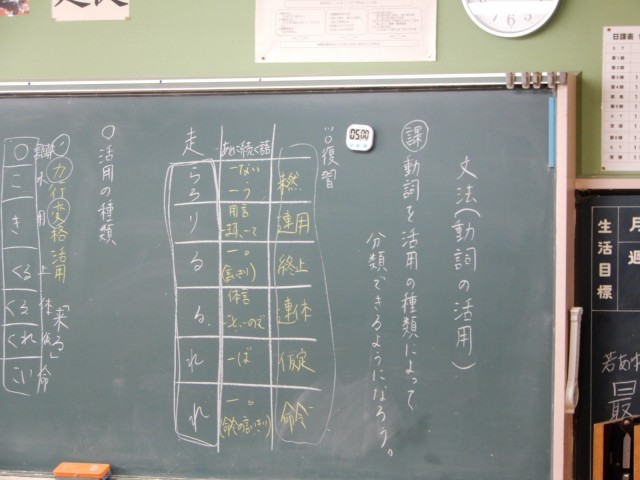 文法(動詞の活用)
課 動詞を活用の種類によって
分類できるようになろう。
05:00
○復習
未然
連用
終止
連体
仮定
命令
あとに続く語
ーない
ーう
用言
ーて
ー。
(言い切り)
体言
ーので
ーば
ー。
(命令の言い切り)
走
らろ
り
る
る
れ
れ
○活用の種類
カ行変格活用
「来る」
○
こ
き
くる
くる
くれ
こい
日課表
生活目標
月
週
最